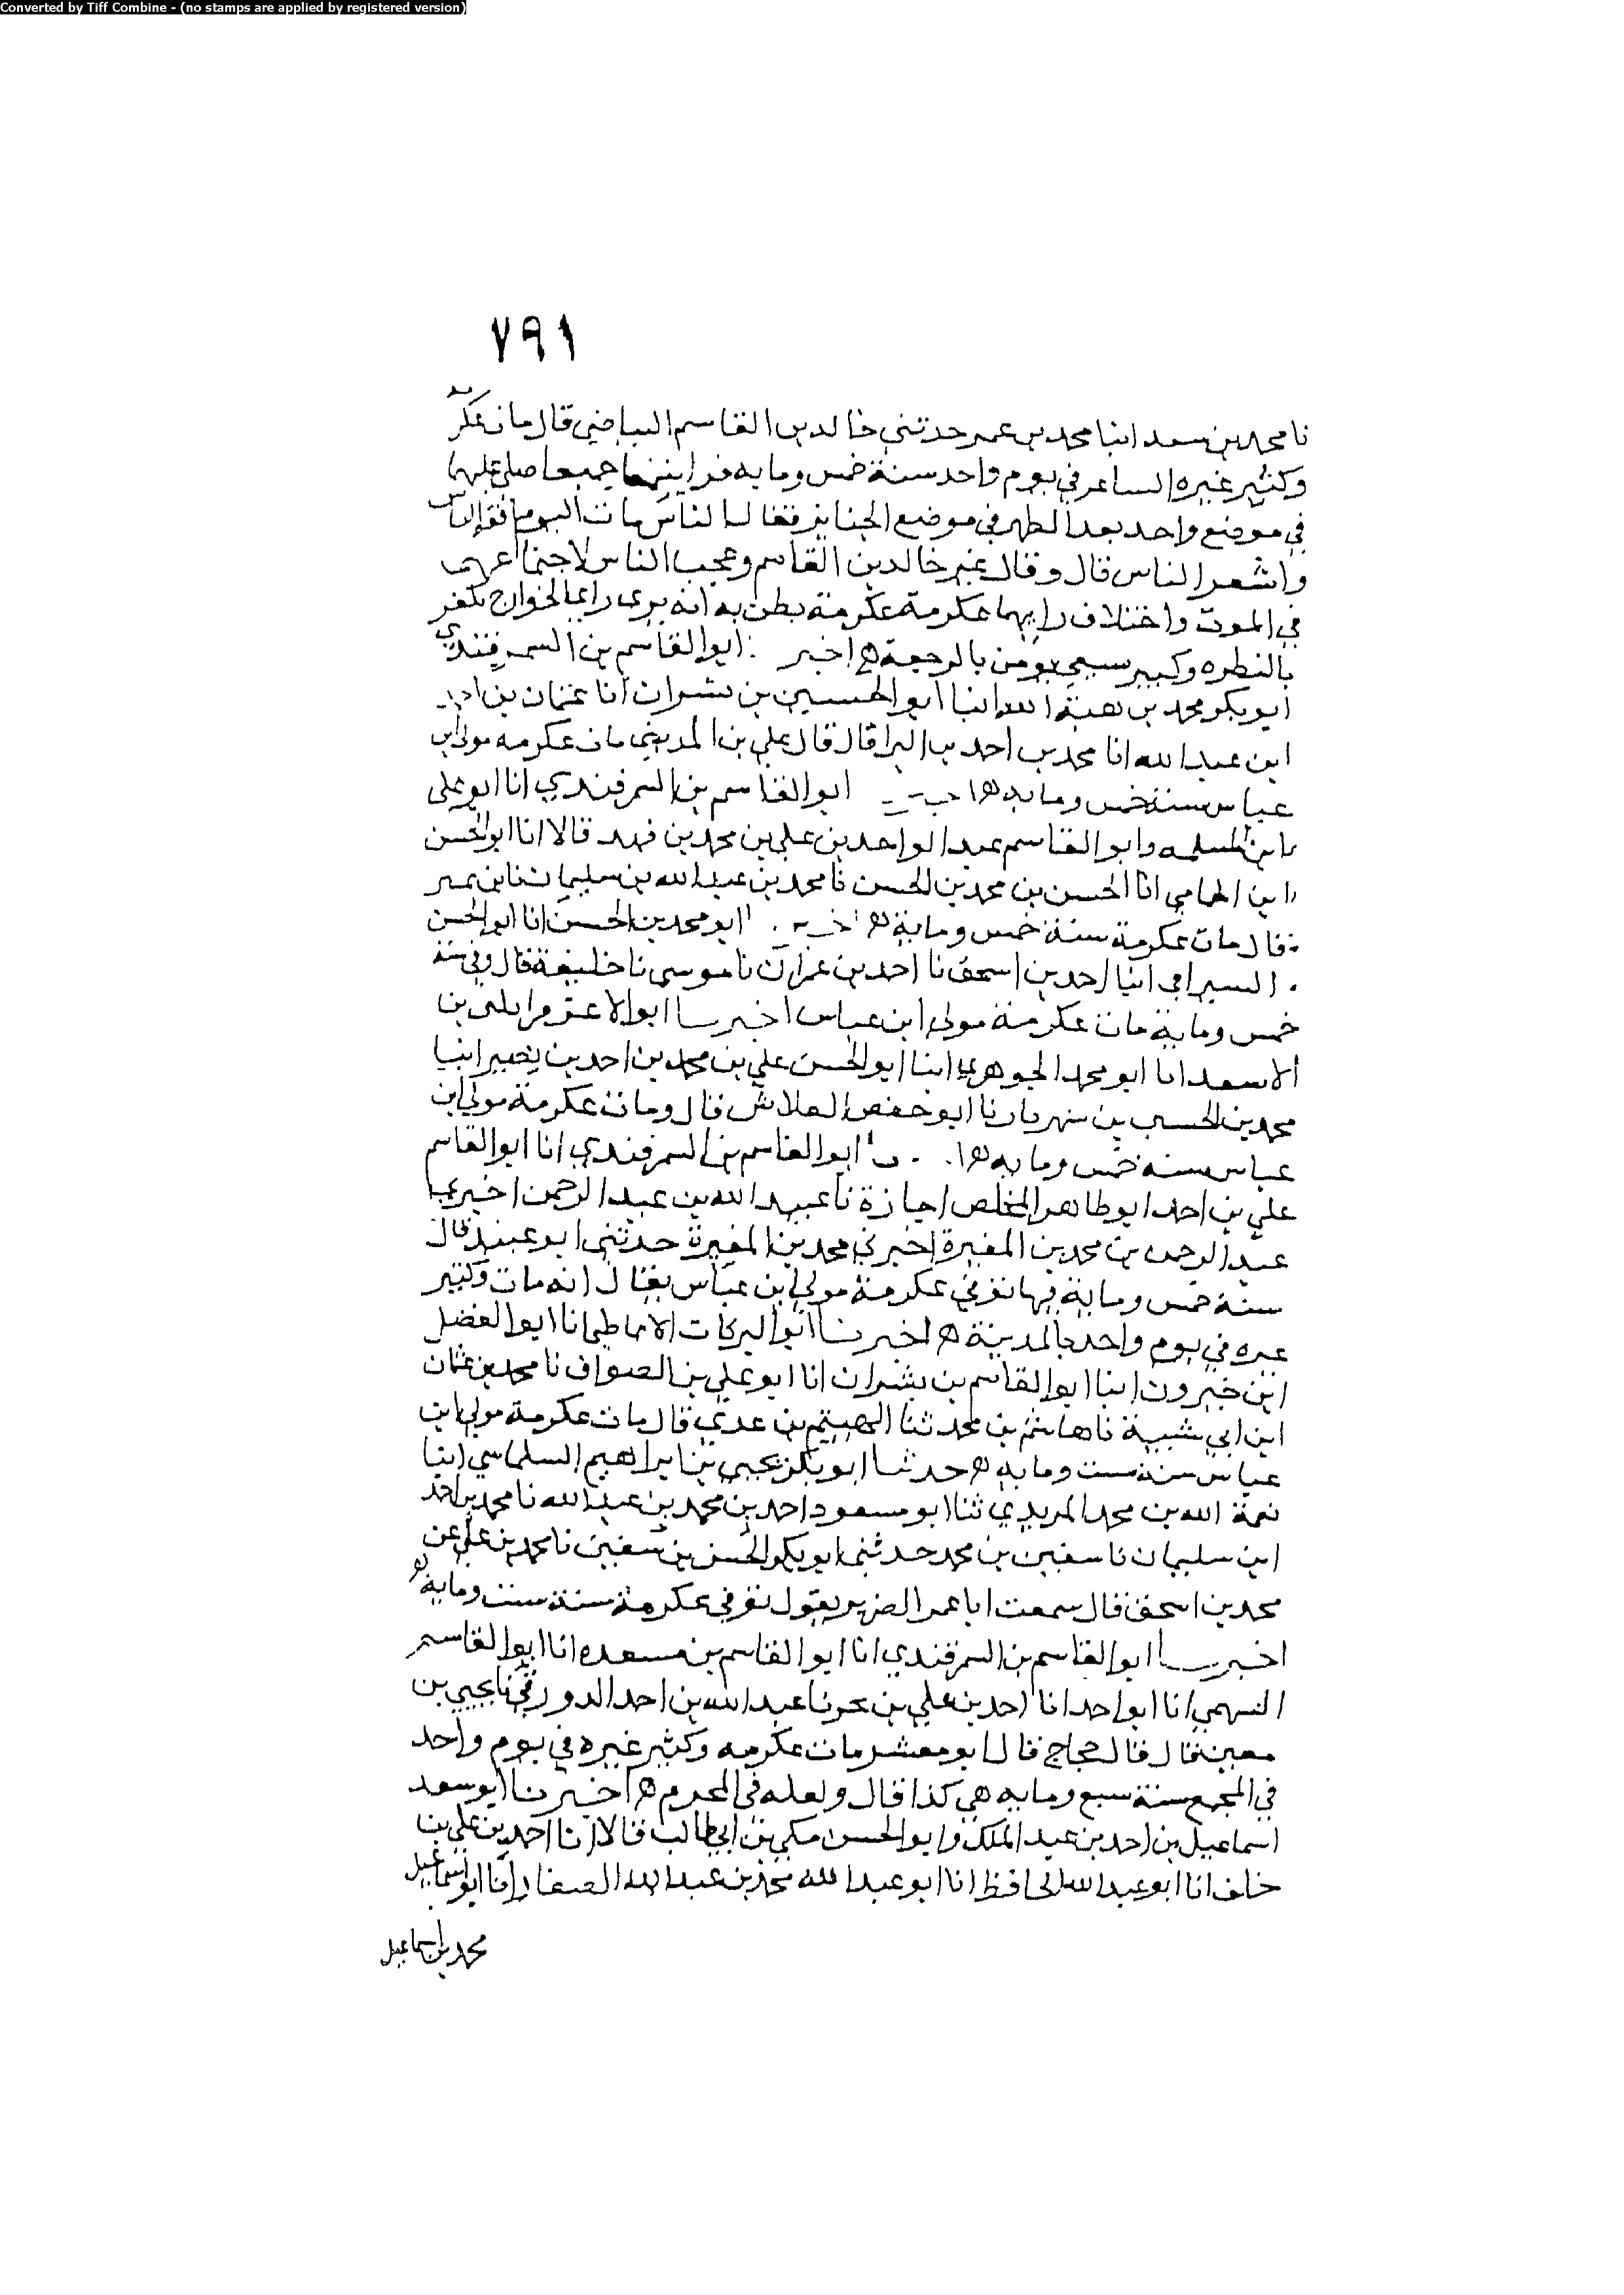 Converted by Tiff Combine - (no stamps are applied by registered version)
٧٩١
نا محمد بن سعد ابنا محمد بن عمر حدثني خالد بن القاسم البياضي قال مات عكرمة
وكثير عزه الساعر في يوم واحد سنة خمس ومايه فرايتهما جميعا صلى عليهما
في موضع واحد بعد الظهر في موضع الجنايز فقال الناس مات اليوم افقه الناس
واشعر الناس قال وقال غير خالد بن القاسم وعجب الناس لاجتماعهما
في الموت واختلاف رايهما عكرمة عكرمة يظن به انه يرى راي الخوارج يكفر
بالنظره وكثير سيعي يومن بالرجعة ه اخبر ابو القاسم بن السمرقندي
ابو بكر محمد بن هبة الله ابنا ابو الحسين بن بشران انا عثمان بن احمد
ابن عبد الله انا محمد بن احمد بن البرا قال قال علي بن المديني مات عكرمه مولى ابن
عباس سنة خمس ومايه ه ابو القاسم بن السمرقندي انا ابو علي
ابن المسلمه وابو القاسم عبد الواحد بن علي بن محمد بن فهد قالا انا ابو الحسن
ابن الحمامي انا الحسن بن محمد بن الحسن نا محمد بن عبد الله بن سليمان نا ابن نمير
قال مات عكرمة سنة خمس وماية ه ابو محمد بن الحسن انا ابو الحسن
السيرافي ابنا احمد بن اسحق نا احمد بن عمران نا موسى نا خليفة قال وفي سنة
خمس وماية مات عكرمة مولى ابن عباس اخبرنا ابو الاعز قراتكين بن
الاسعد انا ابو محمد الجوهري ابنا ابو الحسن علي بن محمد بن احمد بن نصير ابنا
محمد بن الحسين بن شهريار نا ابو حفص الفلاس قال ومات عكرمة مولى ابن
عباس سنه خمس ومايه ه ابو القاسم بن السمرقندي انا ابو القاسم
علي بن احمد ابو طاهر المخلص اجازة نا عبيد الله بن عبد الرحمن اخبرني
عبد الرحمن بن محمد بن المغيرة اخبرني محمد بن المغيرة حدثني ابو عبيد قال
سنة خمس وماية فيها توفي عكرمة مولى ابن عباس يقال انه مات وكثير
عزه في يوم واحد بالمدينة ه اخبرنا ابو البركات الانماطي انا ابو الفضل
ابن خيرون ابنا ابو القاسم بن بشران انا ابو علي بن الصواف نا محمد بن عثمان
ابن ابي شيبة نا هاشم بن محمد ثنا الهيثم بن عدي قال مات عكرمة مولى ابن
عباس سنة ست ومايه ه حدثنا ابو بكر يحيى بن ابراهيم السلماسي ابنا
نعمة الله بن محمد المرندي ثنا ابو مسعود احمد بن محمد بن عبد الله نا محمد بن احمد
ابن سليمان نا سفين بن محمد حدثني ابو بكر الحسن بن سفين نا محمد بن علي عن
محمد بن اسحق قال سمعت ابا عمر الضرير يقول توفي عكرمة سنة ست وماية ه
اخبرنا ابو القاسم بن السمرقندي انا ابو القاسم بن مسعده انا ابو القاسم
السهمي انا ابو احمد انا احمد بن علي بن بحر نا عبد الله بن احمد الدورقي نا يحيى بن
معين قال قال حجاج قال ابو معشر مات عكرمه وكثير عزه في يوم واحد
في المجمع سنة سبع ومايه هي كذا قال ولعله في المحرم ه اخبرنا ابو سعد
اسماعيل بن احمد بن عبد الملك وابو الحسن مكي بن ابي طالب قالا انا احمد بن علي بن
خلف انا ابو عبد الله الحافظ انا ابو عبد الله محمد بن عبد الله الصفار انا ابو اسماعيل
محمد بن اسماعيل